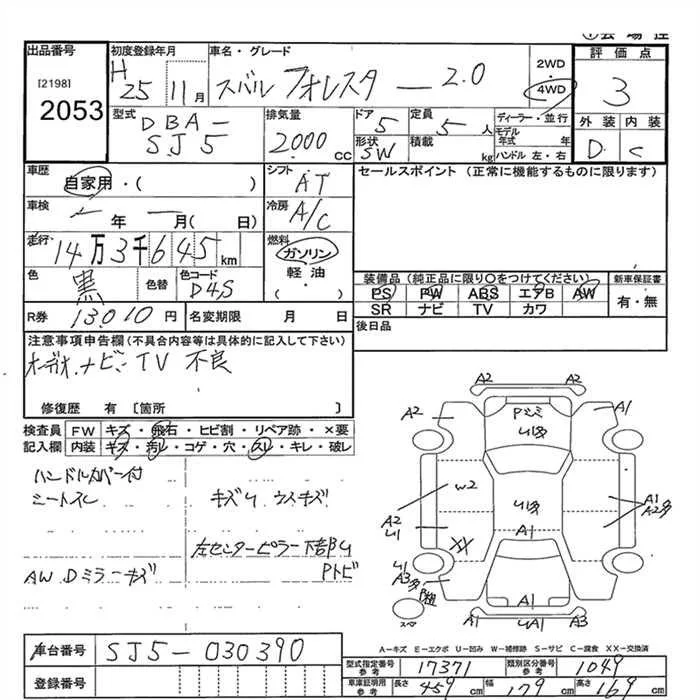 出品番号
[2198]
2053
初度登録年月
H 25 11月
車名・グレード
スバル フォレスタ — 2.0
2WD
4WD
評価点
3
型式
DBA-
SJ5
排気量
2000 cc
ドア
5
形状
SW
定員
5人
積載
kg
ディーラー・並行
モデル年式 年
ハンドル 左・右
外装 内装
D C
車歴
自家用・( )
シフト
AT
セールスポイント (正常に機能するものに限ります)
車検
年 月( 日)
冷房
A/C
走行
14万3千645km
燃料
ガソリン
軽油・
( )
色
黒
色替
色コード
D4S
装備品(純正品に限り○をつけてください)
新車保証書
PS PW ABS エアB AW
SR ナビ TV カワ
有・無
R券 13010円
名変期限 月 日
後日品
注意事項申告欄(不具合内容等は具体的に記入して下さい)
オーディオ、ナビ、TV 不良
修復歴 有 〔箇所 〕
検査員 FW キズ・飛石・ヒビ割・リペア跡・×要
記入欄 内装 キズ・汚レ・コゲ・穴・スレ・キレ・破レ
ハンドルカバー付
シートスレ
キズU ウスキズ
左センターピラー下部U
Pトビ
AW Dミラーキズ
A2 A2
A2 A1
U多
W2
U多
A1
A2多
A2
U1
A1
XX
U1
A3多
P粗
スペア
A1
A1 UA1 A3
A−キズ E−エクボ U−凹み W−補修跡 S−サビ C−腐食 XX−交換済
車台番号 SJ5-030390
登録番号
型式指定番号 参考 17371
類別区分番号 参考 1049
車庫証明用 参考 長さ 459cm 幅 179cm 高さ 169cm